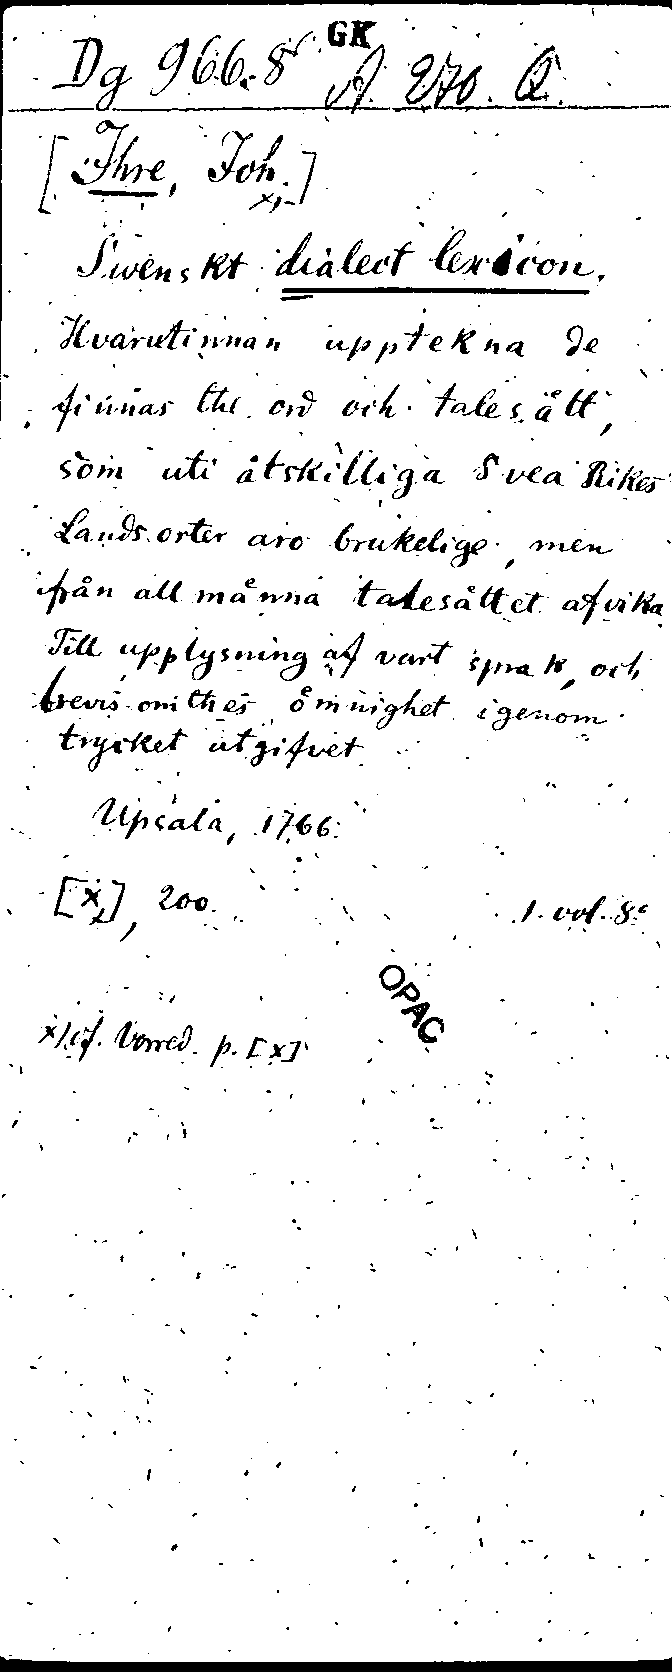 GK
Dg 966.8° A. 270. Q.
[Ihre, Joh.]
x)
Swenskt dialect lexicon.
Hvarutinnan upptekna de
finnas the ord och talesått,
som uti åtskilliga Svea Rikes
Lands orter aro brukelige, men
ifrån all månna talesåttet afvika
Till upplysning af vart sprak, och
bevis om thes omnighet igenom
trycket utgifvet
Upsala, 1766.
[x], 200. 1. vol. 8°
OPAC
x) cf. Vorred. p. [x]